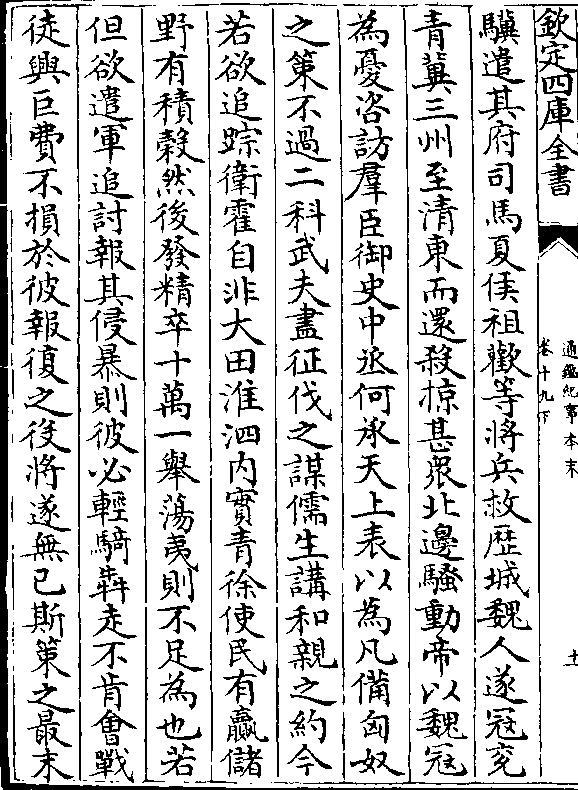 欽定四庫全書
通鑑紀事本末
卷十九下
十一
驥遣其府司馬夏侯祖歡等將兵救歴城魏人遂冦兖
青冀三州至清東而還殺掠甚衆北邊騷動帝以魏冦
為憂咨訪羣臣御史中丞何承天上表以為凡備匈奴
之策不過二科武夫盡征伐之謀儒生講和親之約今
若欲追踪衛霍自非大田淮泗内實青徐使民有贏儲
野有積榖然後發精卒十萬一舉蕩夷則不足為也若
但欲遣軍追討報其侵暴則彼必輕騎犇走不肯會戰
徒興巨費不損於彼報復之役將遂無已斯策之最末